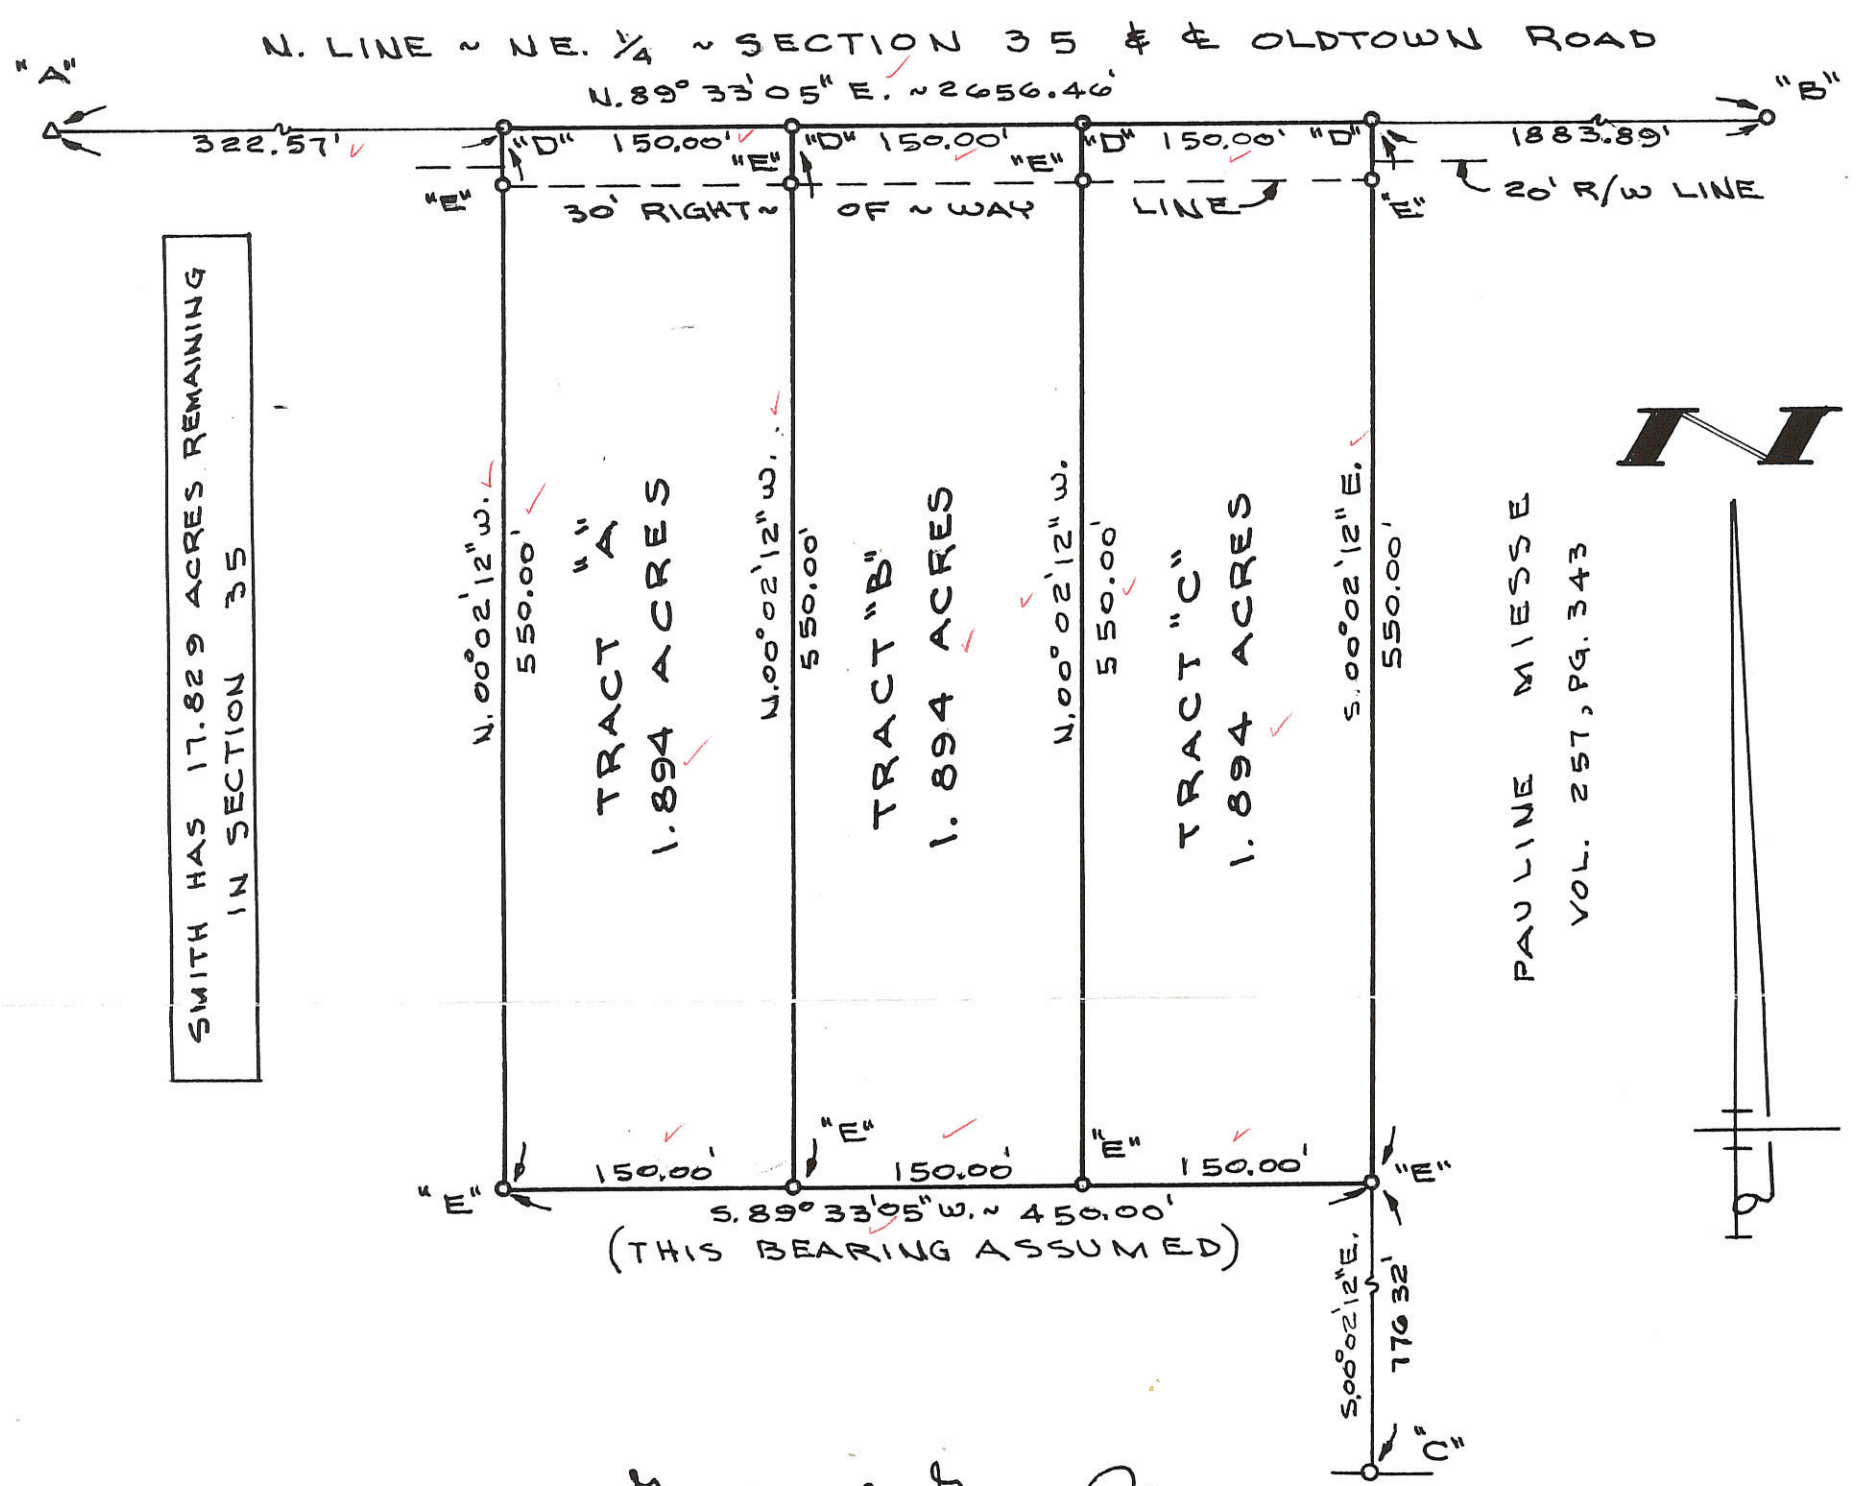 N. LINE ~ NE. 1/4 ~ SECTION 35 & ℄ OLDTOWN ROAD
"A"
N. 89° 33' 05" E. ~ 2656.46'
"B"
322.57'
"D"
150.00'
"D"
150.00'
"D"
150.00'
"D"
1883.89'
"E"
"E"
"E"
"E"
30' RIGHT ~ OF ~ WAY LINE
20' R/W LINE
SMITH HAS 17.829 ACRES REMAINING
IN SECTION 35
N. 00° 02' 12" W.
550.00'
TRACT "A"
1.894 ACRES
N. 00° 02' 12" W.
550.00'
TRACT "B"
1.894 ACRES
N. 00° 02' 12" W.
550.00'
TRACT "C"
1.894 ACRES
S. 00° 02' 12" E.
550.00'
PAULINE MIESSE
VOL. 257, PG. 343
N
"E"
150.00'
"E"
150.00'
"E"
150.00'
"E"
S. 89° 33' 05" W. ~ 450.00'
(THIS BEARING ASSUMED)
S. 00° 02' 12" E.
776 32'
"C"